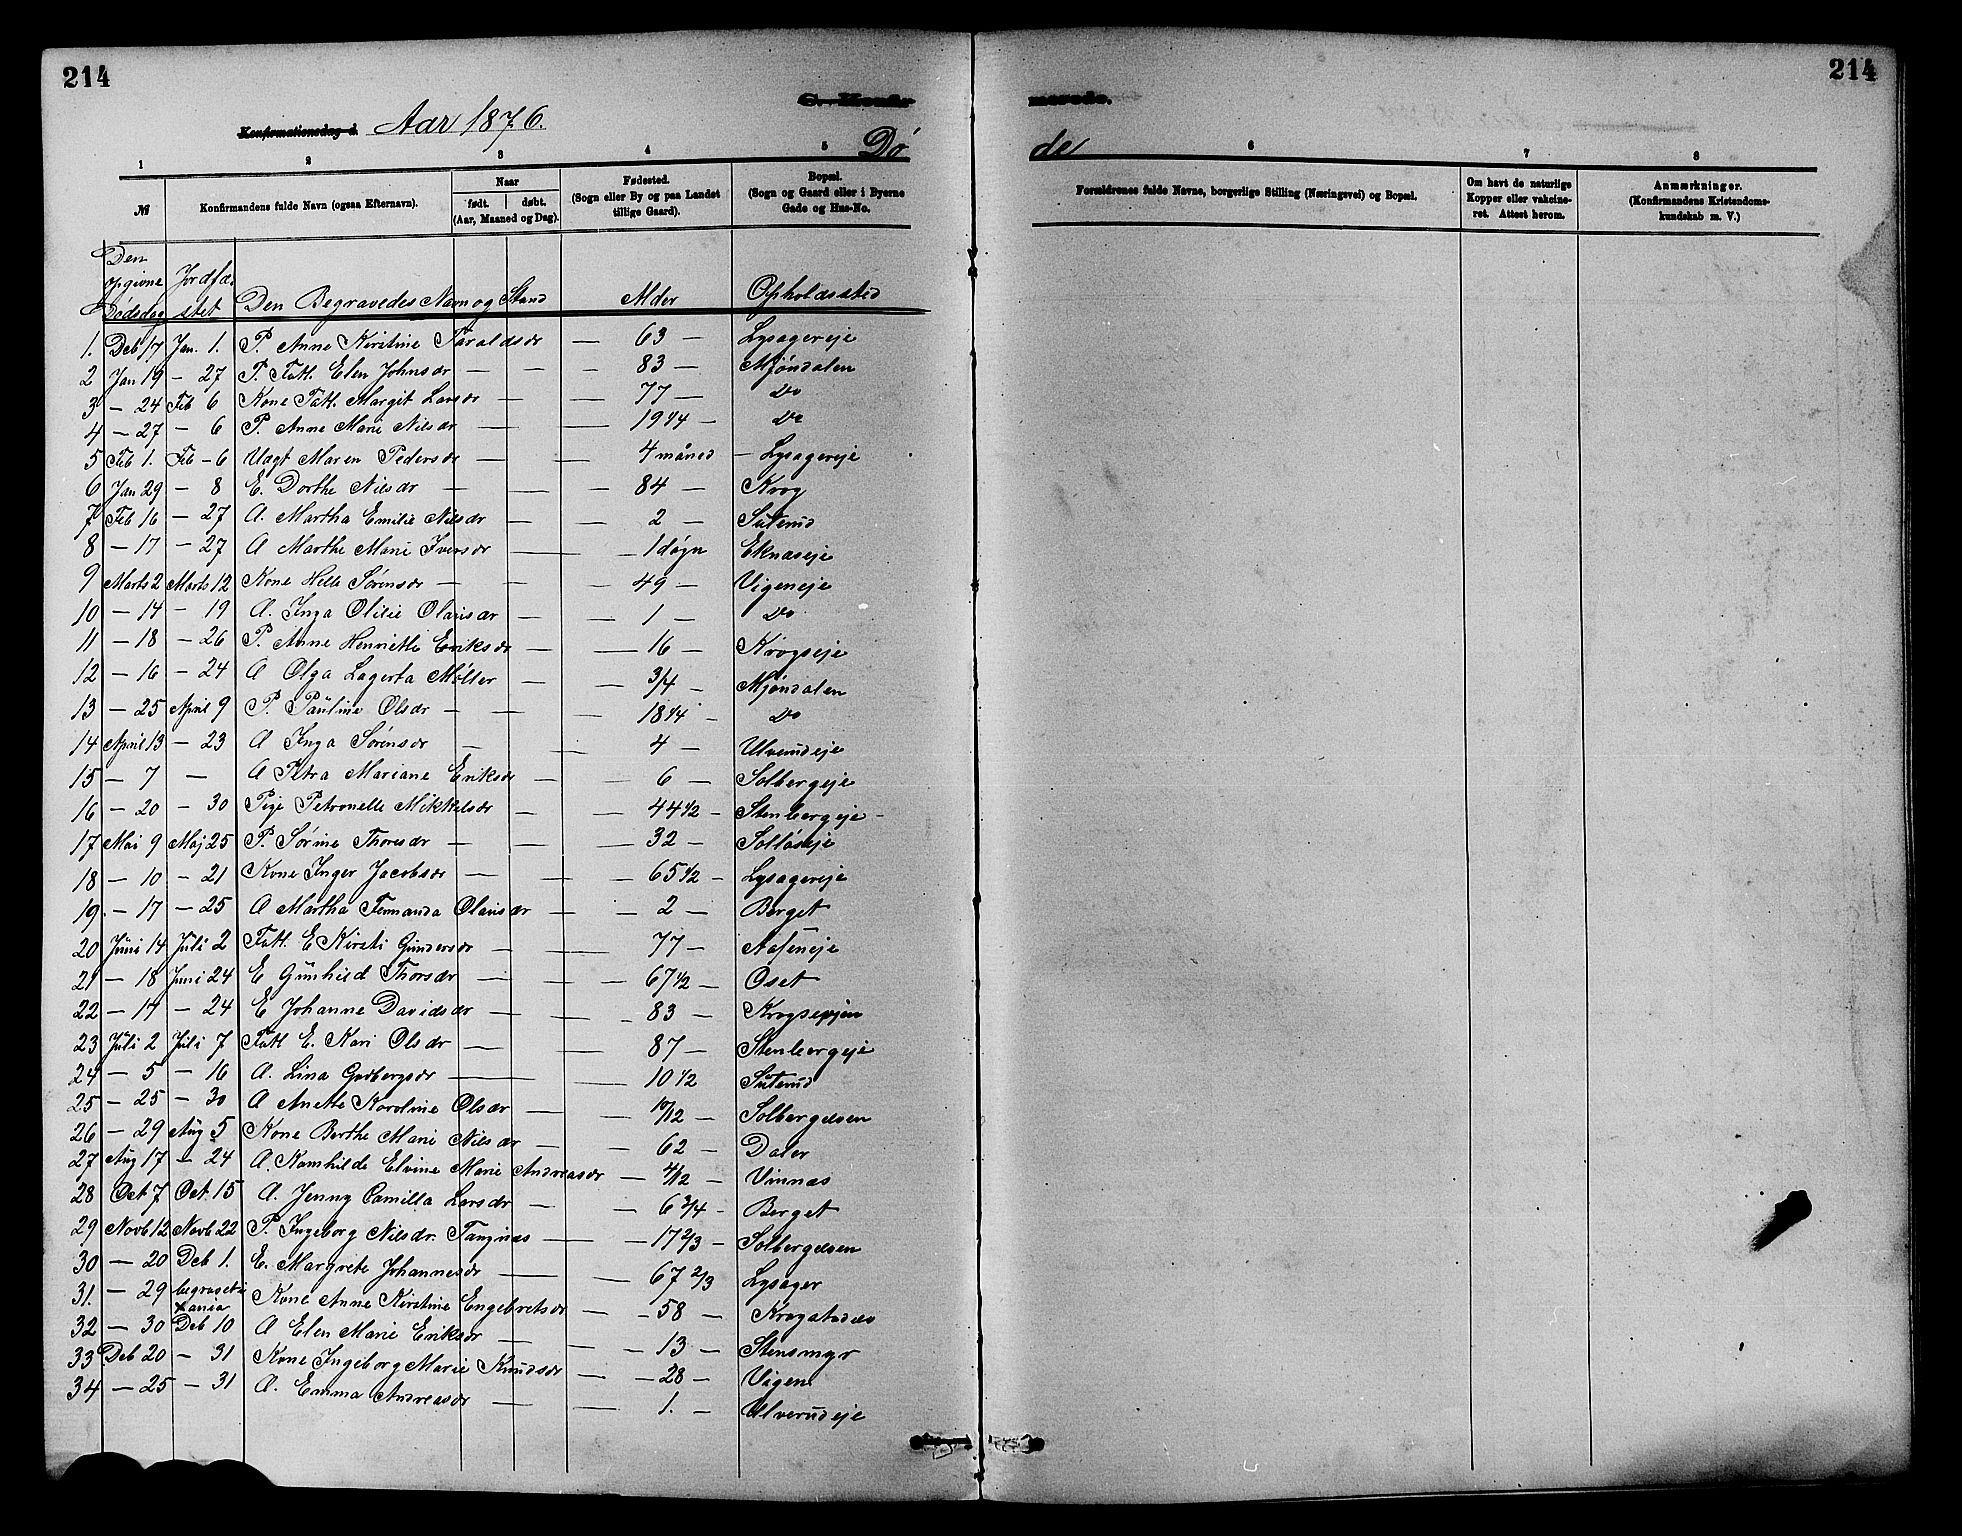 214
214
C. Konfirmerede.
Konfirmationsdag d. Aar 1876.
Døde
1 2 3 4 5 6 7 8
№ Konfirmandens fulde Navn (ogsaa Efternavn). Naar født. døbt. (Aar, Maaned og Dag). Fødested. (Sogn eller By og paa Landet tillige Gaard). Bopæl. (Sogn og Gaard eller i Byerne Gade og Hus-No. Forældrenes fulde Navne, borgerlige Stilling (Næringsvei) og Bopæl. Om havt de naturlige Kopper eller vakcineret. Attest herom. Anmærkninger. (Konfirmandens Kristendomskundskab m. V.)
Den opgivne Dødsdag Jordfæstet Den Begravedes Navn og Stand Alder Opholdssted
1. Deb 17 Jan. 1. P. Anne Kirstine Taraldsdr — 63 — Lysagereje
2 Jan 19 — 27 P. Fatt. Elen Johnsdr — — — 83 — Mjøndalen
3 — 24 Feb 6 Kone Fatt. Margit Larsdr — — 77 — Do
4 — 27 — 6 P. Anne Marie Nilsdr — — 19 1/4 — Do
5 Feb 1. Feb — 6 Uægt Maren Pedersdr — — 4 måned — Lysagereje
6 Jan 29 — 8 E. Dorthe Nilsdr — — — 84 — Krog
7 Feb 16 — 27 A. Martha Emilie Nilsdr — — 2 — Suterud
8 — 17 — 27 A Marthe Marie Iversdr — — 1 døgn Eknæseje
9 Marts 2 Marts 12 Kone Helle Sørensdr — — — 49 — Vigeneje
10 — 14 — 19 A. Inga Olilie Olavisdr — — 1 — Do
11 — 18 — 26 P. Anne Henriette Eriksdr — — 16 — Krogseje
12 — 16 — 24 A Olga Lagerta Møller — — 3/4 — Mjøndalen
13 — 25 April 9 P. Pauline Olsdr — — — 18 1/4 — Do
14 April 13 — 23 A Inga Sørensdr — — 4 — Ulverudeje
15 — 7 — A Petra Mariane Eriksdr — — 6 — Solbergeje
16 — 20 — 30 Pige Petronelle Mikkelsdr — — 44 1/2 — Stenbergeje —
17 Mai 9 Maj 25 P. Sørine Thoresdr — — — 32 — Solløseje
18 — 10 — 21 Kone Inger Jacobsdr — — 65 1/2 — Lysagereje
19. — 17 — 25 A Martha Fernanda Olavisdr — — 2 — Berget
20 Juni 14 Juli 2 Fatt. E Kirsti Gundersdr — — 77 —
21 — 18 Juni 24 E Gunhild Thorsdr — — 67 1/2 — Oset
22 — 17 — 24 E Johanne Davidsdr — — 83 —
23 Juli 2 Juli 7 Fatt E. Kari Olsdr — — 87 — Stenbergeje
24 — 5 — 16 A. Lina Gudbergsdr — — 10 1/2 Suterud
25 — 25 — 30 A Anette Karoline Olsdr — — 10/12 — Solbergelven
26 — 29 Aug 5 Kone Berthe Marie Nilsdr — — 62 — Daler
27 Aug 17 — 24 A. Ramhilde Elvine Marie Andreasdr — 4/12 — Vinnæs
28 Oct. 7 Oct. 15 A. Jenny Camilla Larsdr — — 6 3/4 — Berget
29 Novb 12 Novb 22 P. Ingeborg Nilsdr. Tangnæs — — 17 2/3 — Solbergelven
30 — 20 Deb 1. E. Margrete Johannesdr — — 67 2/3 Lysager
31. — 29 begravet i Xania Kone Anne Kirstine Engebretsdr — 58 — Krogstadelv
32 — 30 Deb 10 A Elen Marie Eriksdr — — 13 — Stensmyr
33 Deb 20 — 31 Kone Ingeborg Marie Knudsdr — — 28 — Vigen
34 — 25 — 31 A. Emma Andreasdr — — 1. — Ulverudeje